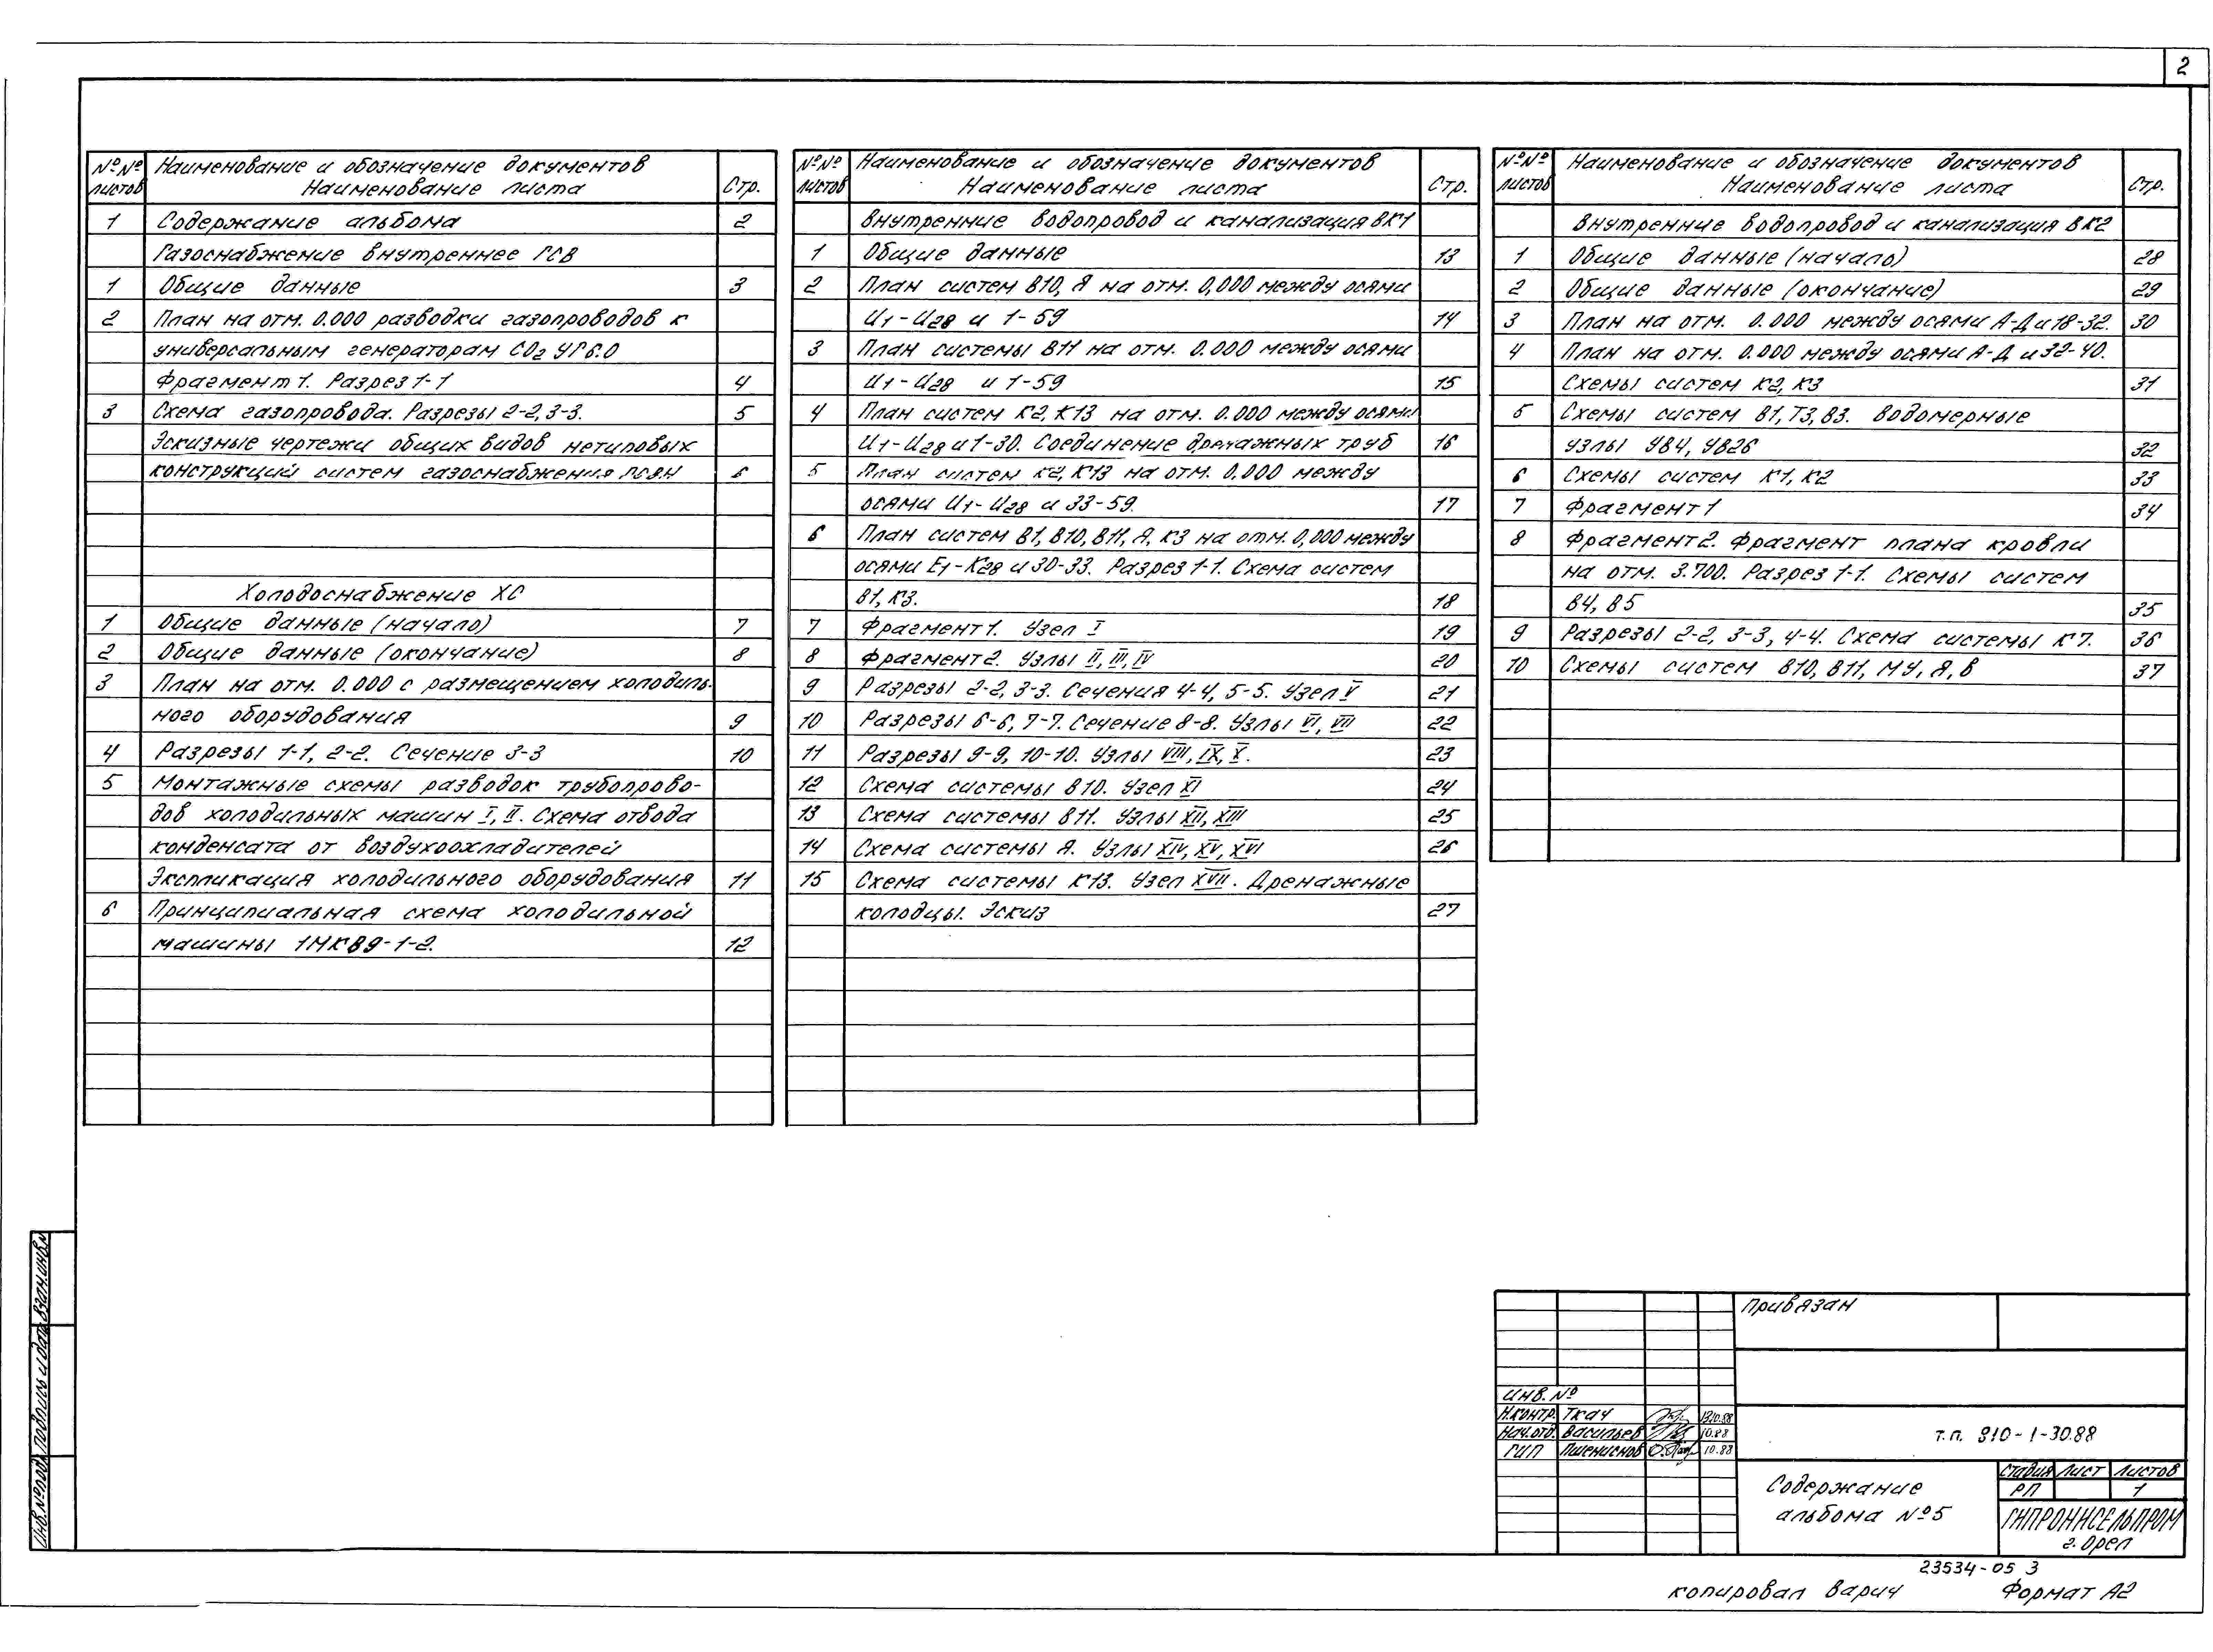 2
№№ Наименование и обозначение документов
листов Наименование листа Стр.
1 Содержание альбома 2
Газоснабжение внутреннее ГСВ
1 Общие данные 3
2 План на отм. 0.000 разводки газопроводов к
универсальным генераторам СО2 УГ6.0
Фрагмент 1. Разрез 1-1 4
3 Схема газопровода. Разрезы 2-2, 3-3. 5
Эскизные чертежи общих видов нетиповых
конструкций систем газоснабжения ГСВН 6
Холодоснабжение ХС
1 Общие данные (начало) 7
2 Общие данные (окончание) 8
3 План на отм. 0.000 с размещением холодиль-
ного оборудования 9
4 Разрезы 1-1, 2-2. Сечение 3-3 10
5 Монтажные схемы разводок трубопрово-
дов холодильных машин I, II. Схема отвода
конденсата от воздухоохладителей
Экспликация холодильного оборудования 11
6 Принципиальная схема холодильной
машины 1МКВ9-1-2. 12
№№ Наименование и обозначение документов
листов Наименование листа Стр.
Внутренние водопровод и канализация ВК1
1 Общие данные 13
2 План систем В10, Я на отм. 0,000 между осями
И1-И28 и 1-59 14
3 План системы В11 на отм. 0.000 между осями
И1-И28 и 1-59 15
4 План систем К2, К13 на отм. 0.000 между осями
И1-И28 и 1-30. Соединение дренажных труб 16
5 План систем К2, К13 на отм. 0,000 между
осями И1-И28 и 33-59. 17
6 План систем В1, В10, В11, Я, К3 на отм. 0,000 между
осями Е1-К28 и 30-33. Разрез 1-1. Схема систем
В1, К3. 18
7 Фрагмент 1. Узел I 19
8 Фрагмент 2. Узлы II, III, IV 20
9 Разрезы 2-2, 3-3. Сечения 4-4, 5-5. Узел V 21
10 Разрезы 6-6, 7-7. Сечение 8-8. Узлы VI, VII 22
11 Разрезы 9-9, 10-10. Узлы VIII, IX, X. 23
12 Схема системы В10. Узел XI 24
13 Схема системы В11. Узлы XII, XIII 25
14 Схема системы Я. Узлы XIV, XV, XVI 26
15 Схема системы К13. Узел XVII. Дренажные
колодцы. Эскиз 27
№№ Наименование и обозначение документов
листов Наименование листа Стр.
Внутренние водопровод и канализация ВК2
1 Общие данные (начало) 28
2 Общие данные (окончание) 29
3 План на отм. 0.000 между осями А-Д и 18-32. 30
4 План на отм. 0.000 между осями А-Д и 32-40.
Схемы систем К2, К3 31
5 Схемы систем В1, Т3, В3. Водомерные
узлы УВ4, УВ26 32
6 Схемы систем К1, К2 33
7 Фрагмент 1 34
8 Фрагмент 2. Фрагмент плана кровли
на отм. 3.700. Разрез 1-1. Схемы систем
В4, В5 35
9 Разрезы 2-2, 3-3, 4-4. Схема системы К7. 36
10 Схемы систем В10, В11, МУ, Я, В 37
Взам.инв.№
Подпись и дата
Инв.№подл.
Привязан
Инв. №
Н.контр. Ткач 10.88
Нач.отд. Васильев 10.88
ГИП Пшениснов 10.88
т.п. 810-1-30.88
Содержание
альбома №5
Стадия Лист Листов
РП 1
ГИПРОНИСЕЛЬПРОМ
г. Орел
23534-05 3
Копировал Варич Формат А2